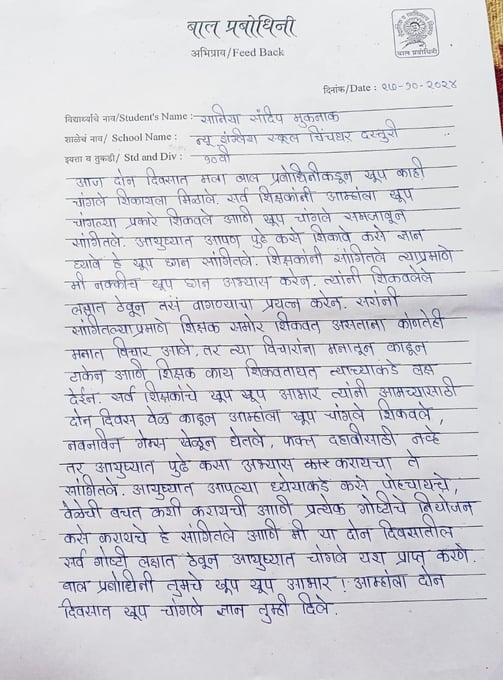 बाल प्रबोधिनी
अभिप्राय/Feed Back
बाल प्रबोधिनी
दिनांक/Date : २७-१०-२०२४
विद्यार्थ्याचे नाव/Student's Name : सानिया संदिप मुकनाक
शाळेचं नाव/ School Name : न्यू इंग्लिश स्कूल चिंचघर दस्तुरी
इयत्ता व तुकडी/ Std and Div : १०वी
आज दोन दिवसात मला बाल प्रबोधिनीकडून खूप काही
चांगले शिकायला मिळाले. सर्व शिक्षकांनी आम्हांला खूप
चांगल्या प्रकारे शिकवले आणि खूप चांगले समजावून
सांगितले. आयुष्यात आपण पुढे कसे शिकावे कसे ज्ञान
घ्यावे हे खूप छान सांगितले. शिक्षकांनी सांगितले त्याप्रमाणे
मी नक्कीच खूप छान अभ्यास करेन. त्यांनी शिकवलेले
लक्षात ठेवून तसं वागण्याचा प्रयत्न करेन. सरांनी
सांगितल्याप्रमाणे शिक्षक समोर शिकवत असताना कोणतेही
मनात विचार आले, तर त्या विचारांना मनातून काढून
टाकेन आणि शिक्षक काय शिकवतायत त्याच्याकडे लक्ष
देईन. सर्व शिक्षकांचे खूप खूप आभार त्यांनी आमच्यासाठी
दोन दिवस वेळ काढून आम्हांला खूप चांगले शिकवले,
नवनविन गेम्स खेळून घेतले, फक्त दहावीसाठी नव्हे
तर आयुष्यात पुढे कसा अभ्यास करायचा ते
सांगितले. आयुष्यात आपल्या ध्येयाकडे कसे पोहचायचे,
वेळेची बचत कशी करायची आणि प्रत्येक गोष्टीचे नियोजन
कसे करायचे हे सांगितले आणि मी या दोन दिवसातील
सर्व गोष्टी लक्षात ठेवून आयुष्यात चांगले यश प्राप्त करेन.
बाल प्रबोधिनी तुमचे खूप खूप आभार! आम्हांला दोन
दिवसात खूप चांगले ज्ञान तुम्ही दिले.